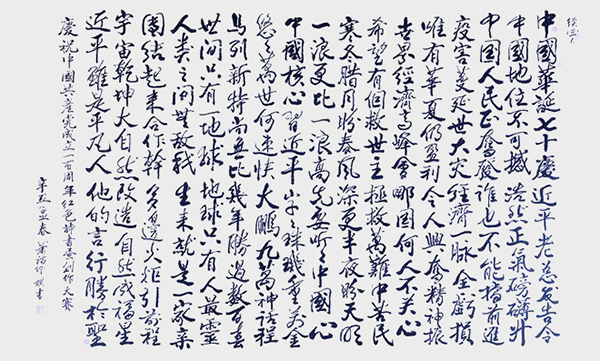 中國華誕七十慶近平老總友告令
中國地位不可撼浩然正氣磅礴升
中国人民正奮發誰也不能擋前進
疫害蔓延世大灾經濟一脉全虧損
唯有華夏仍盈利令人興奮精神振
世界經濟高峰會哪国何人不关心
希望有個救世主拯救萬難中苦民
寒冬腊月盼春風深更半夜盼天明
一浪更比一浪高先要听了中國心
中國核心習近平字字珠璣重萬金
悠悠萬世何速快大鵬九萬神話程
馬列新特尚無比幾年勝過數百春
世间只有一地球地球只有人最靈
人类之间無敌我生来就是一家亲
團结起来合作幹火炬引前程
宇宙乾坤大自然改造自然成福星
近平雖是平凡人他的言行勝於聖
慶祝中國共産党成立一百周年红色詩書画创作大赛
辛丑孟春 撰書